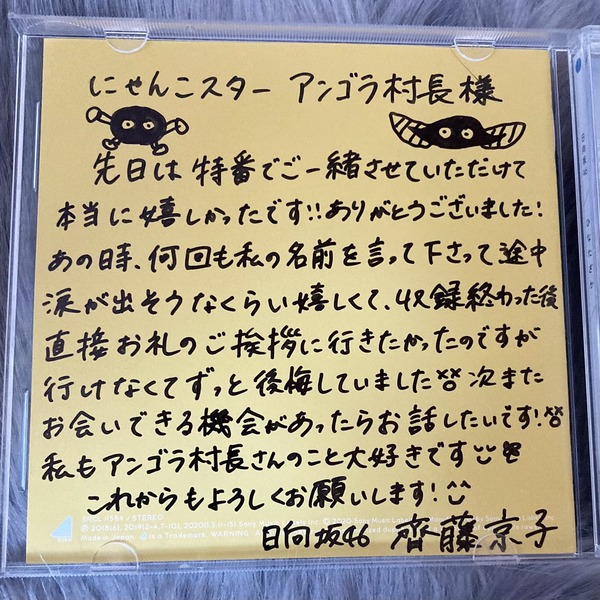 にゃんこスター アンゴラ村長様
先日は特番でご一緒させていただけて
本当に嬉しかったです!!ありがとうございました!
あの時、何回も私の名前を言って下さって途中
涙が出そうなくらい嬉しくて、収録終わった後
直接お礼のご挨拶に行きたかったのですが
行けなくてずっと後悔していました 次また
お会いできる機会があったらお話したいです!
私もアンゴラ村長さんのこと大好きです
これからもよろしくお願いします!
日向坂46 齊藤京子
STEREO
Made in Japan. is a Trademark. WARNING